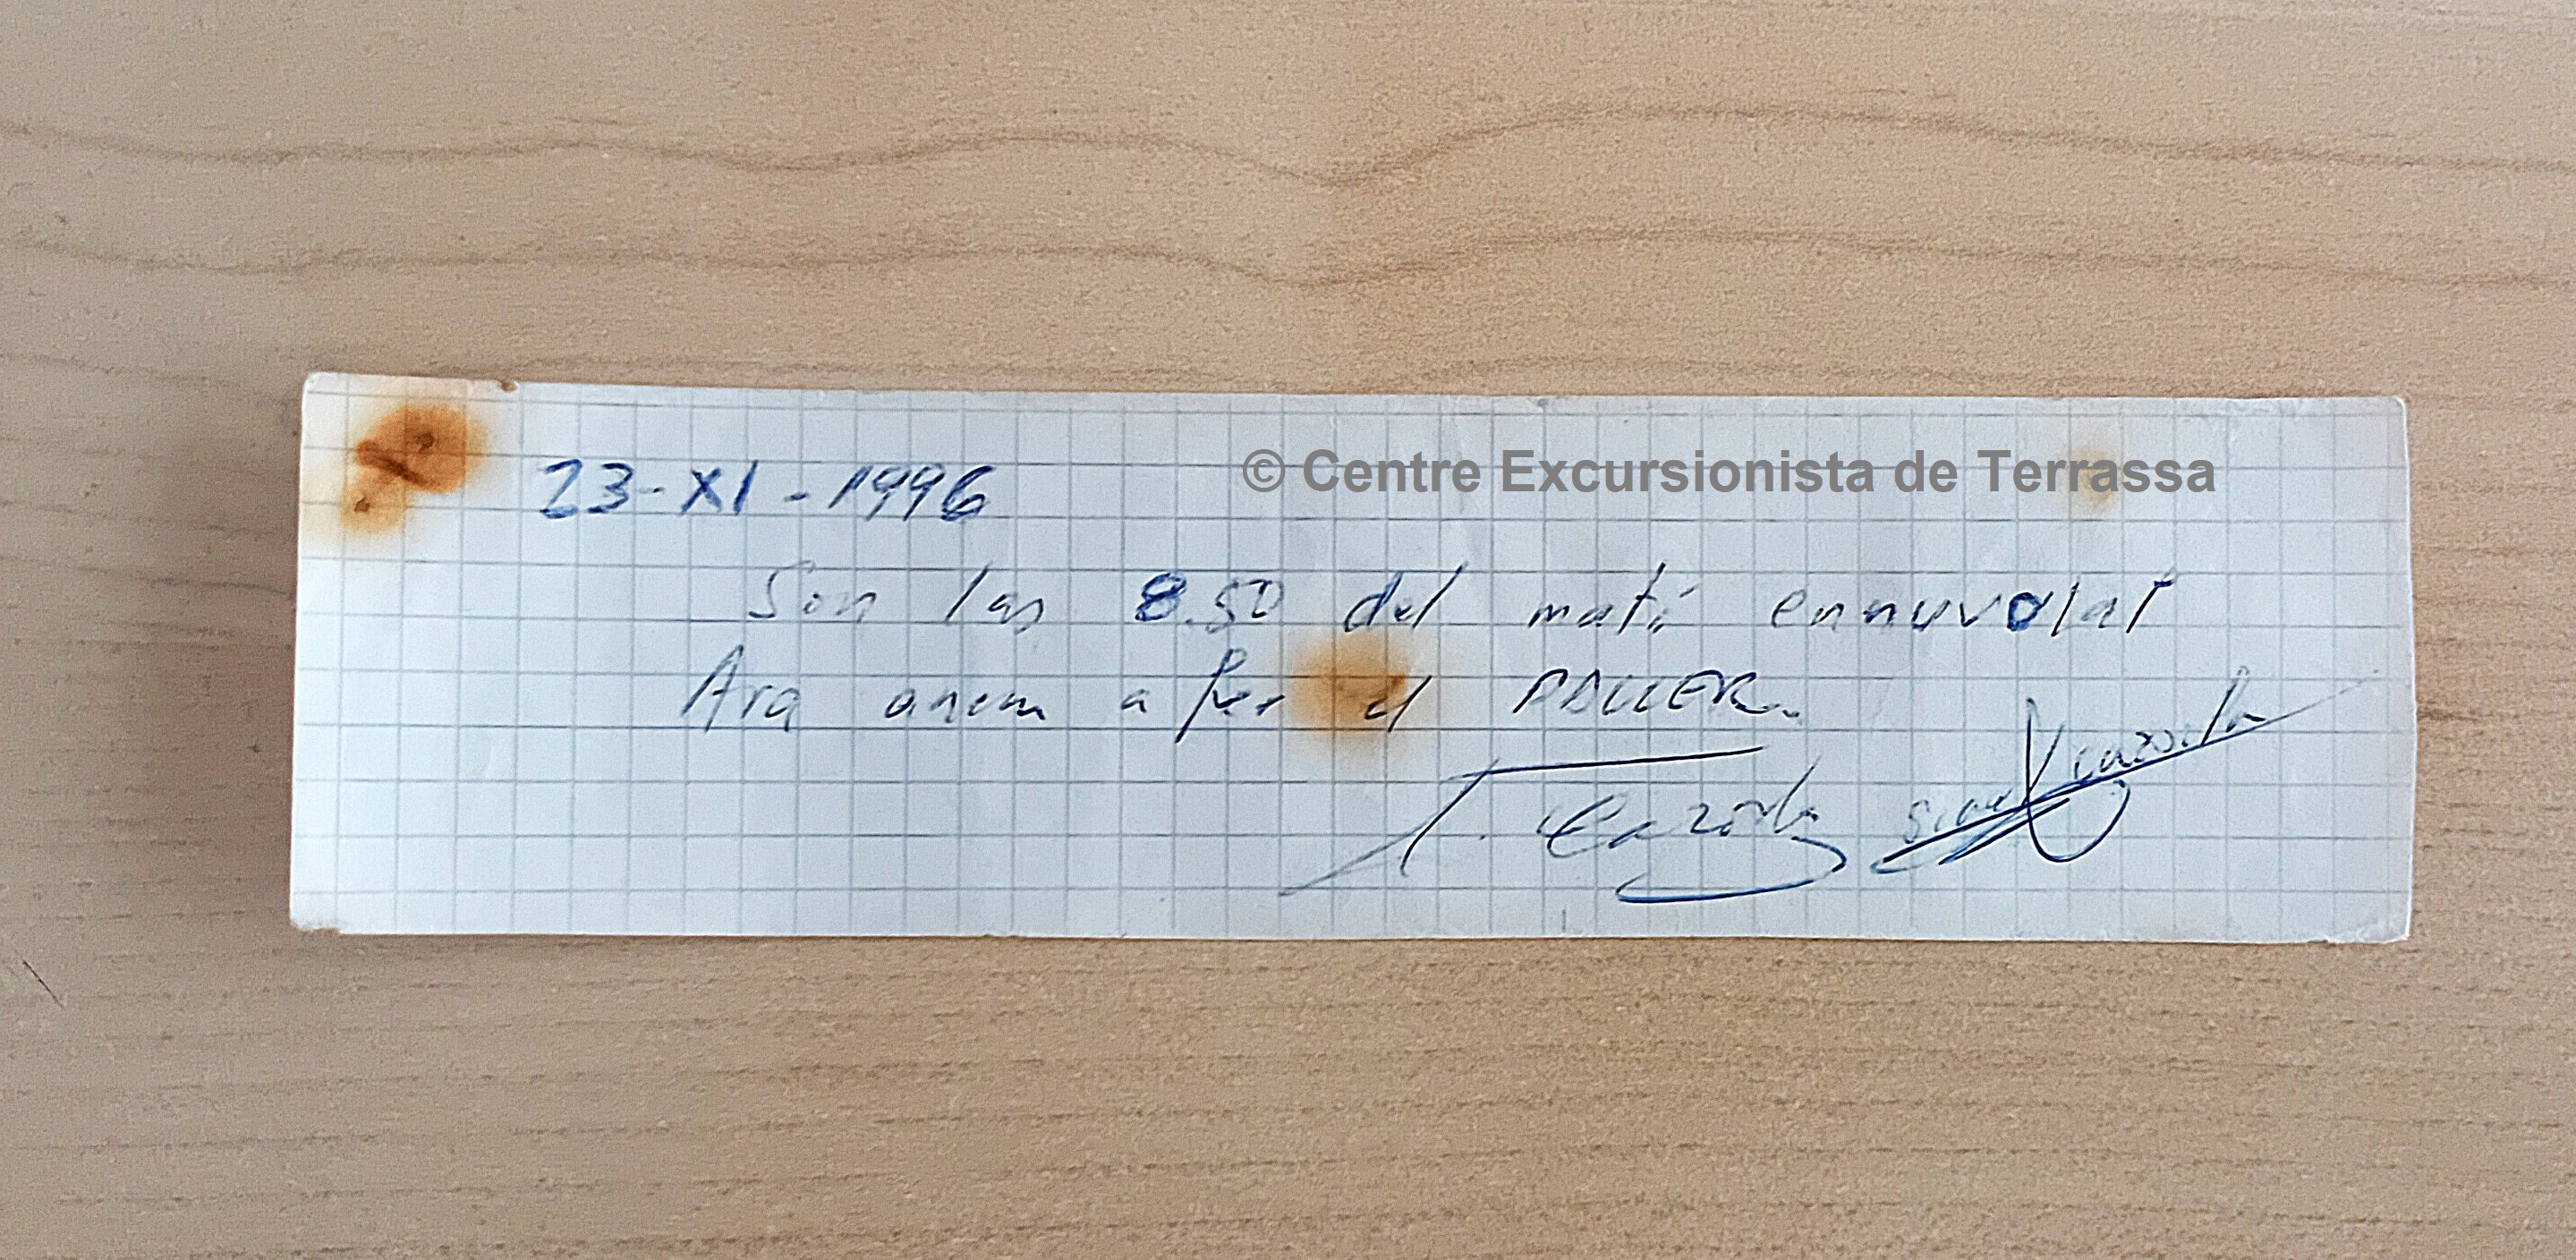 © Centre Excursionista de Terrassa
23-XI-1996
Son las 8.50 del matí ennuvolat
Ara anem a fer el PALLER.
T. Cazorla